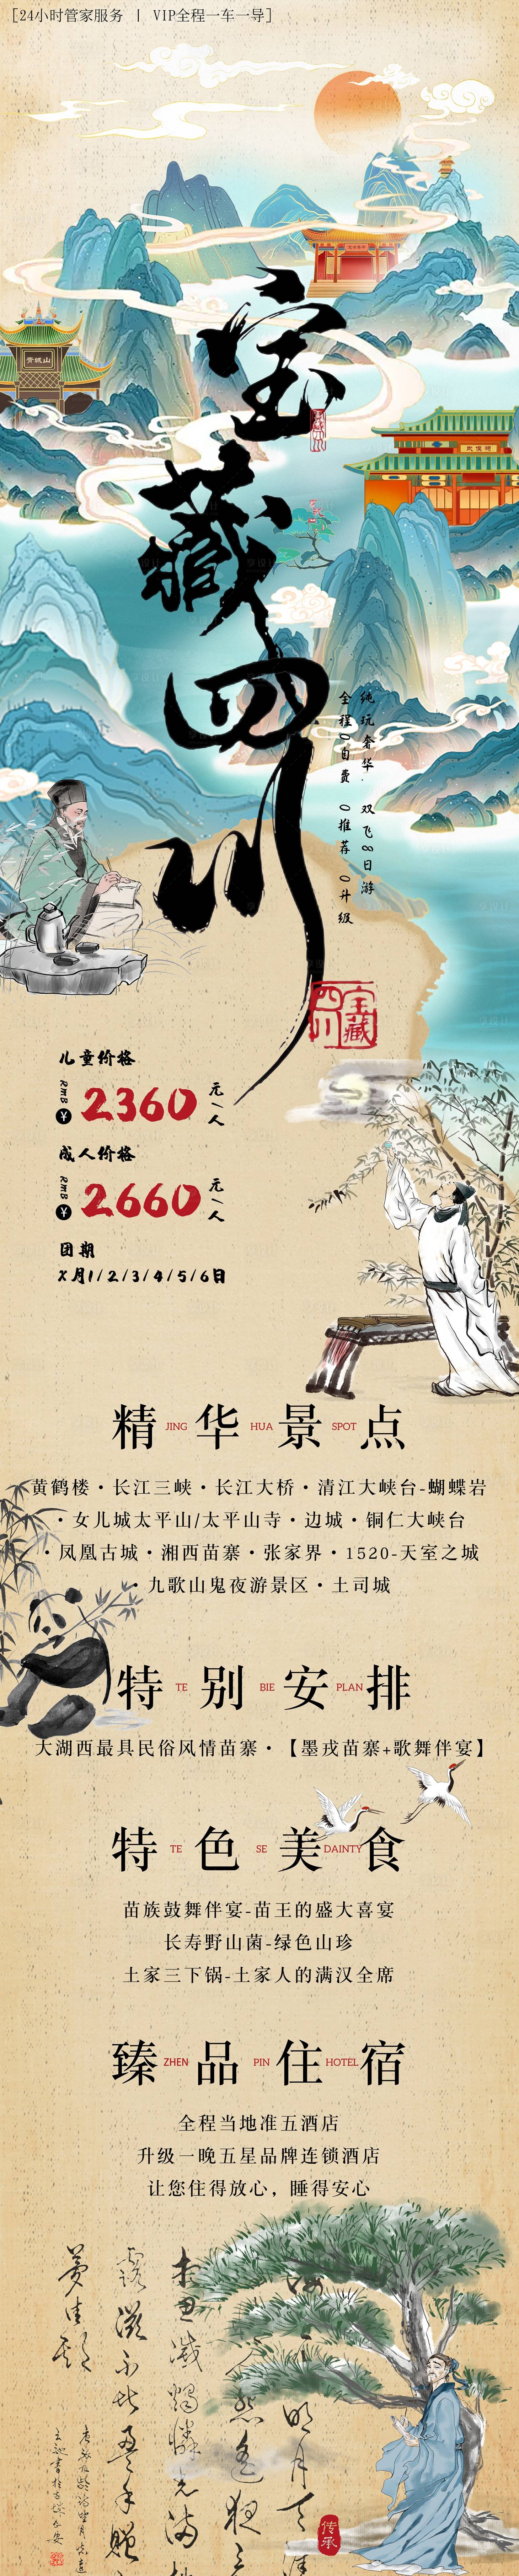 [24小时管家服务 | VIP全程一车一导]
青城山
武侯祠
宝藏四川
纯玩奢华 双飞8日游
全程0自费 0推荐 0升级
宝藏四川
儿童价格
RMB ¥ 2360 元/人
成人价格
RMB ¥ 2660 元/人
团期
X月1/2/3/4/5/6日
精 JING 华 HUA 景 SPOT 点
黄鹤楼·长江三峡·长江大桥·清江大峡台-蝴蝶岩
·女儿城太平山/太平山寺·边城·铜仁大峡台
·凤凰古城·湘西苗寨·张家界·1520-天室之城
·九歌山鬼夜游景区·土司城
特 TE 别 BIE 安 PLAN 排
大湖西最具民俗风情苗寨·【墨戎苗寨+歌舞伴宴】
特 TE 色 SE 美 DAINTY 食
苗族鼓舞伴宴-苗王的盛大喜宴
长寿野山菌-绿色山珍
土家三下锅-土家人的满汉全席
臻 ZHEN 品 PIN 住 HOTEL 宿
全程当地准五酒店
升级一晚五星品牌连锁酒店
让您住得放心，睡得安心
传承